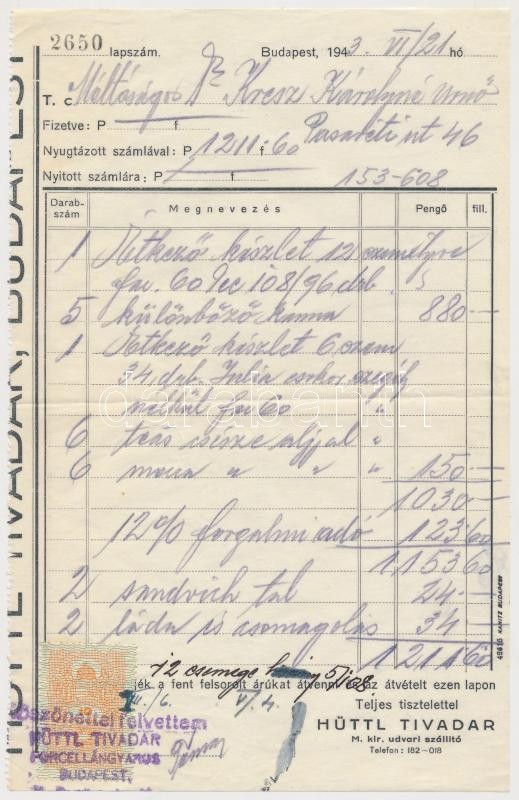 2650 lapszám. Budapest, 1943 VI/21 hó
T. c. Méltóságos Dr Kresz Károlyné úrnő
Fizetve: P f. Pasaréti út 46
Nyugtázott számlával: P 1211 f. 60
Nyitott számlára: P f. 153-608
Darabszám Megnevezés Pengő fill.
1 Étkező készlet 12 személyre
fac. 60 Dec 108/96 drb.
5 különböző kanna 880 —
1 Étkező készlet 6 szem
34 drb. Julia
nélkül fac 60 "
6 teás csésze aljjal "
6 mocca " " " 150 —
1030 —
12 % forgalmi adó 123 60
1153 60
2 sandvich tál 24 —
2 láda és csomagolás 34 —
1211 60
12 csemege 5/108
jék a fent felsorolt árúkat átvenni és az átvételt ezen lapon
Teljes tisztelettel
HÜTTL TIVADAR
M. kir. udvari szállító
Telefon: 182-018
Köszönettel felvettem
HÜTTL TIVADAR
PORCELLÁNGYÁROS
BUDAPEST,
HÜTTL TIVADAR, BUDAPEST
49615 KANITZ BUDAPEST
darabanth